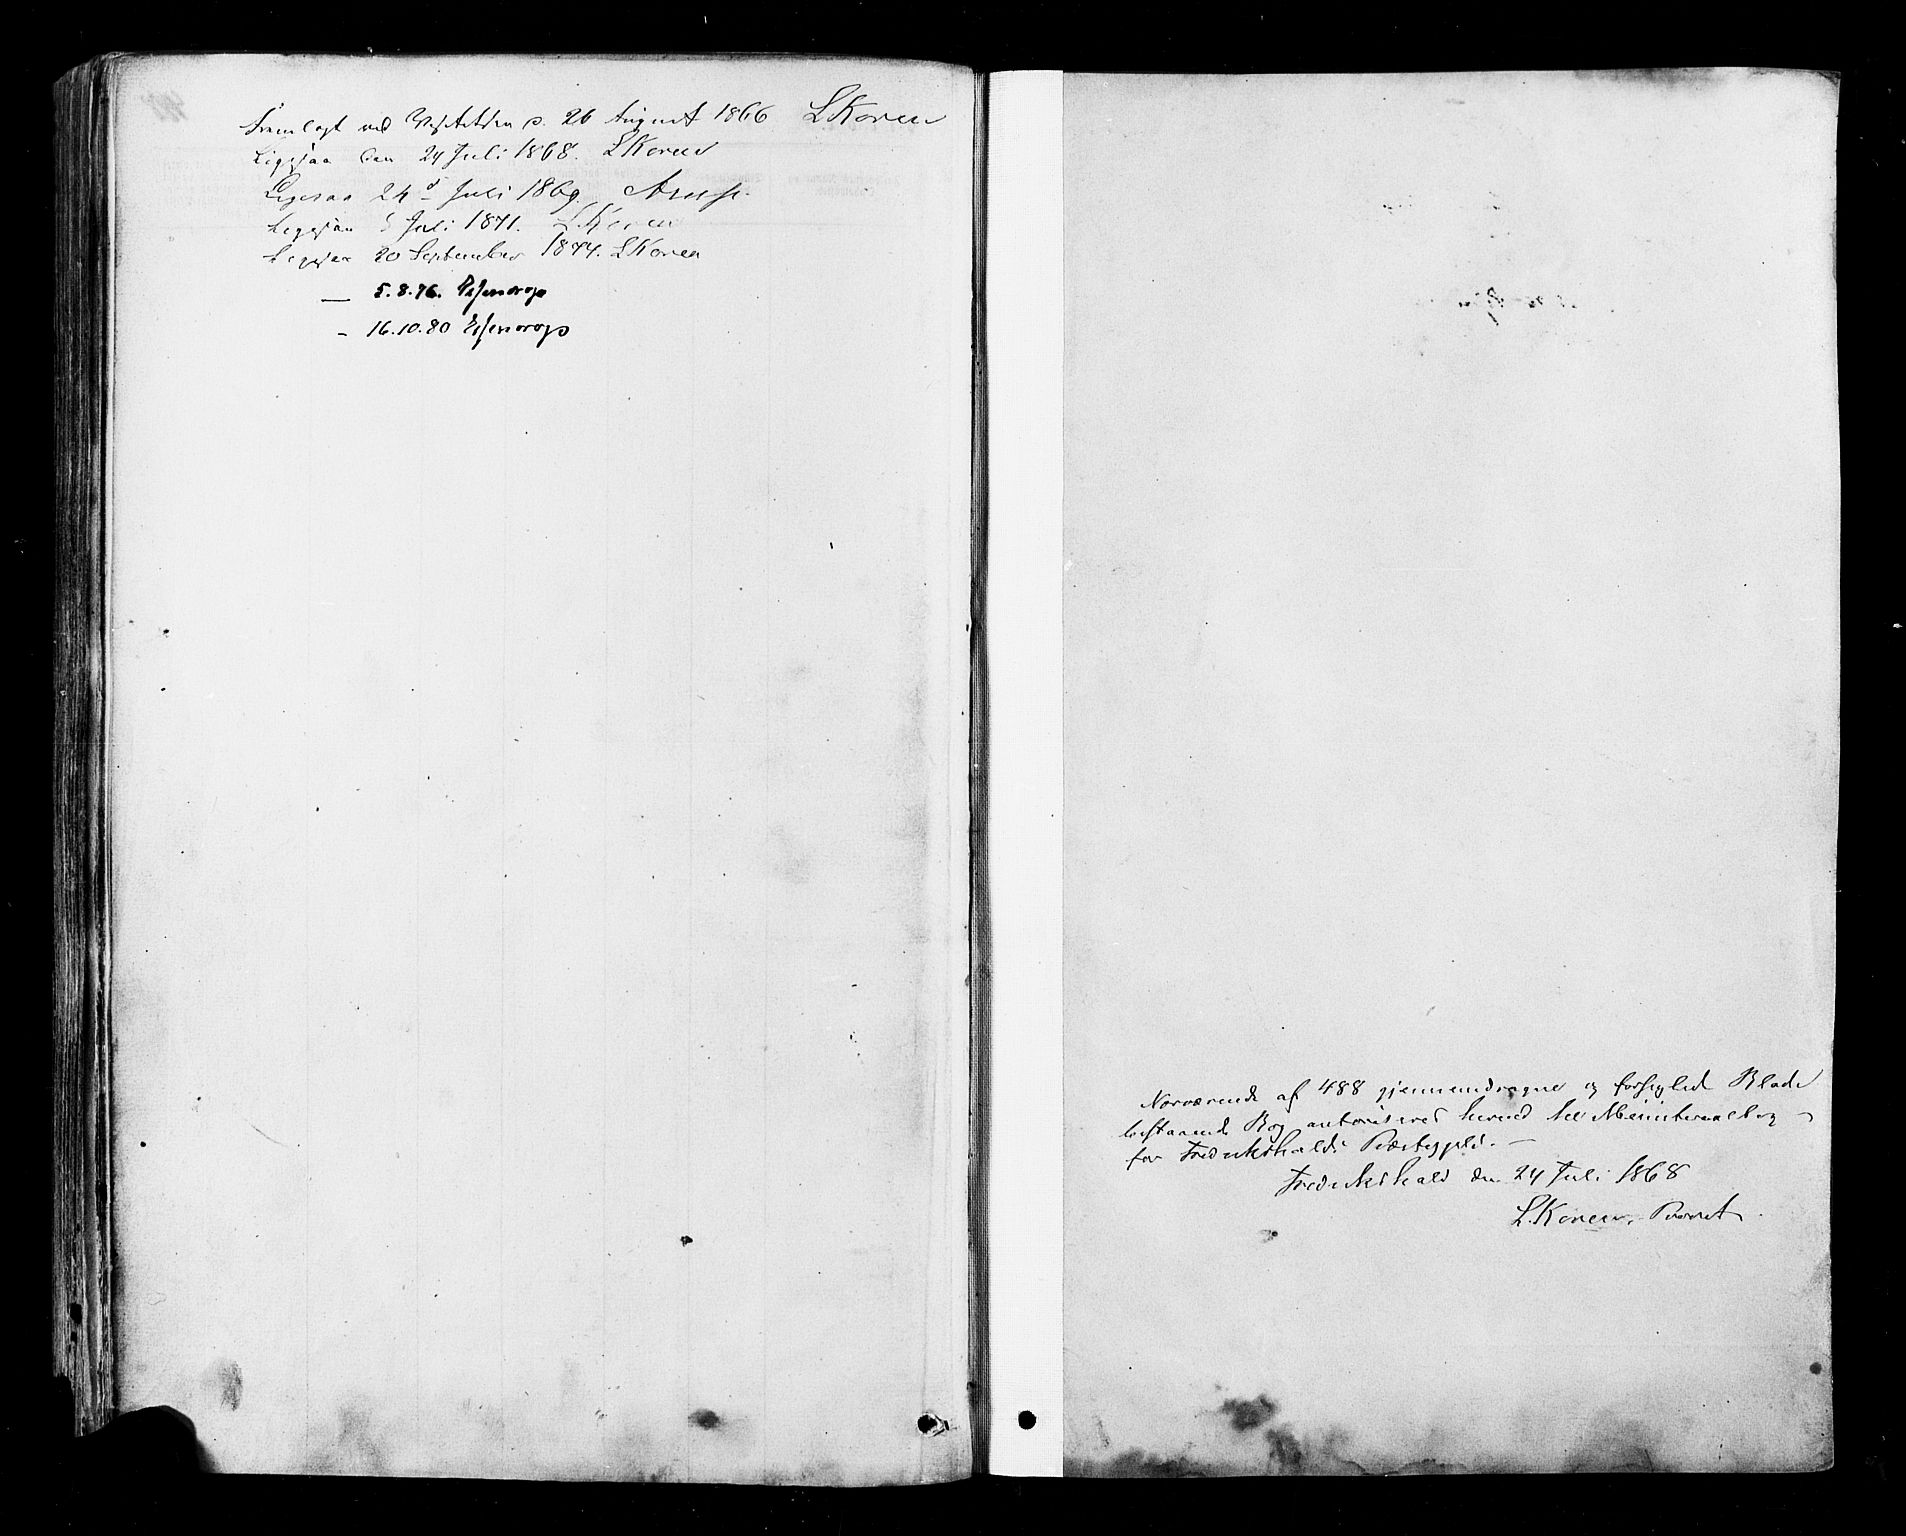 Fremlagt ved Visitatsen d. 26 August 1866 L Koren
Ligesaa den 24 Juli 1868. L Koren
Ligesaa 24 Juli 1869.
Ligesaa 5 Juli 1871. L. Koren
Ligesaa 20 September 1874. L Koren
— 5.8.76. Essendrop
- 16.10.80 Essendrop
Nærværende af 488 gjennemdragne og forseglede Blade
bestaaende Bog autoriseres herved til Ministerialbog
for Frederikshalds Præstegjeld. —
Frederikshald den 24 Juli 1868
L. Koren, Provst.